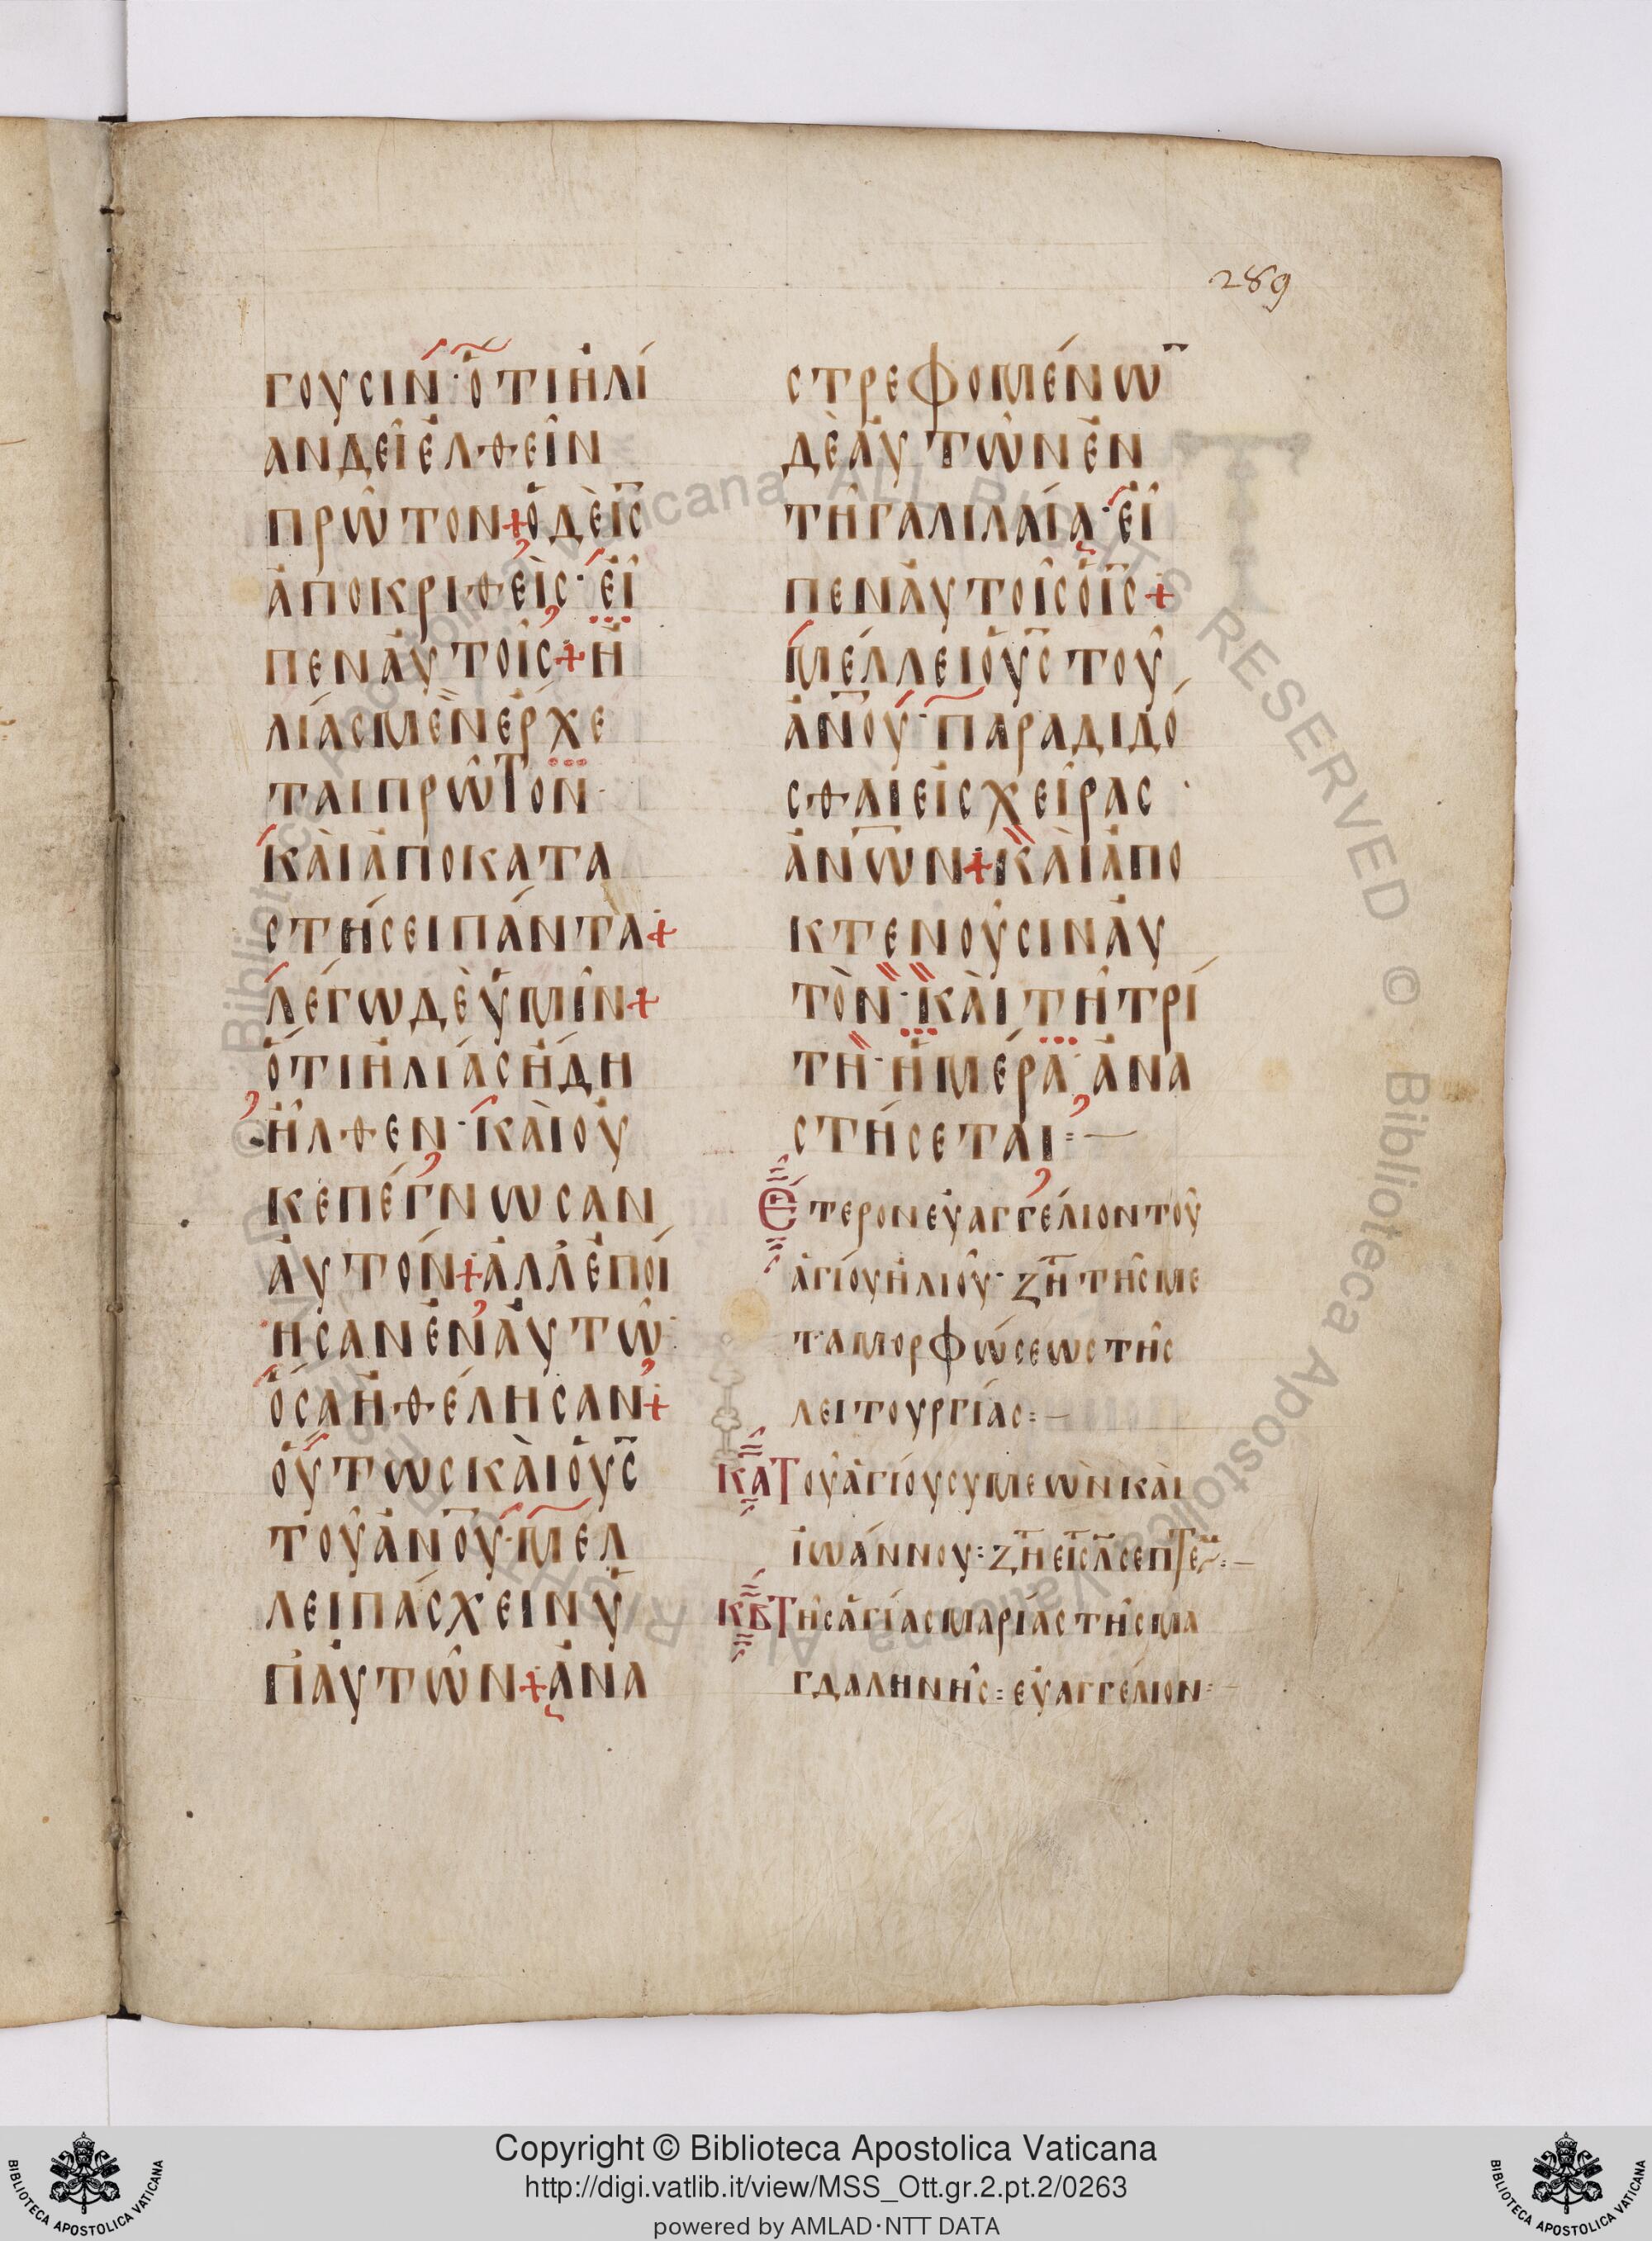 289
γουσιν· ὅτι ἠλί
αν δεῖ ἐλθεῖν
πρῶτον + ὁ δὲ ις̅
ἀποκριθεὶς· εἶ
πεν αὐτοῖς + ἠ
λίας μὲν ἔρχε
ται πρῶτον·
καὶ ἀποκατα
στήσει πάντα +
λέγω δὲ ὑμῖν +
ὅτι ἠλίας ἤδη
ἦλθεν· καὶ οὐ
κ ἐπέγνωσαν
αὐτόν + ἀλλ' ἐποί
ησαν ἐν αὐτῷ·
ὅσα ἠθέλησαν +
οὕτως καὶ ὁ υς̅
τοῦ ανου̅· μέλ
λει πάσχειν ὑ
π' αὐτῶν + ἀνα
στρεφομένω̅
δὲ αὐτῶν ἐν
τῇ γαλιλαίᾳ· εἶ
πεν αὐτοῖς ὁ ις̅ +
μέλλει ὁ υς̅ τοῦ
ανου̅· παραδίδο
σθαι εἰς χεῖρας
ανων̅ + καὶ ἀπο
κτενοῦσιν αὐ
τὸν· καὶ τῇ τρί
τῃ· ἡμέρᾳ· ἀνα
στήσεται :—
Ἕτερον εὐαγγέλιον τοῦ
ἁγίου ἠλιοῦ· ζη̅ τῆς με
ταμορφώσεως τῆς
λειτουργίας :—
κα Τοῦ ἁγίου συμεὼν καὶ
ἰωάννου : ζη̅ εἰς λ̅ σεπτε :—
κβ Τῆς ἁγίας μαρίας τῆς μα
γδαληνῆς : εὐαγγέλιον :—
Copyright © Biblioteca Apostolica Vaticana
http://digi.vatlib.it/view/MSS_Ott.gr.2.pt.2/0263
powered by AMLAD·NTT DATA
BIBLIOTECA APOSTOLICA VATICANA
BIBLIOTECA APOSTOLICA VATICANA
© Biblioteca Apostolica Vaticana ALL RIGHTS RESERVED
© Biblioteca Apostolica Vaticana ALL RIGHTS RESERVED